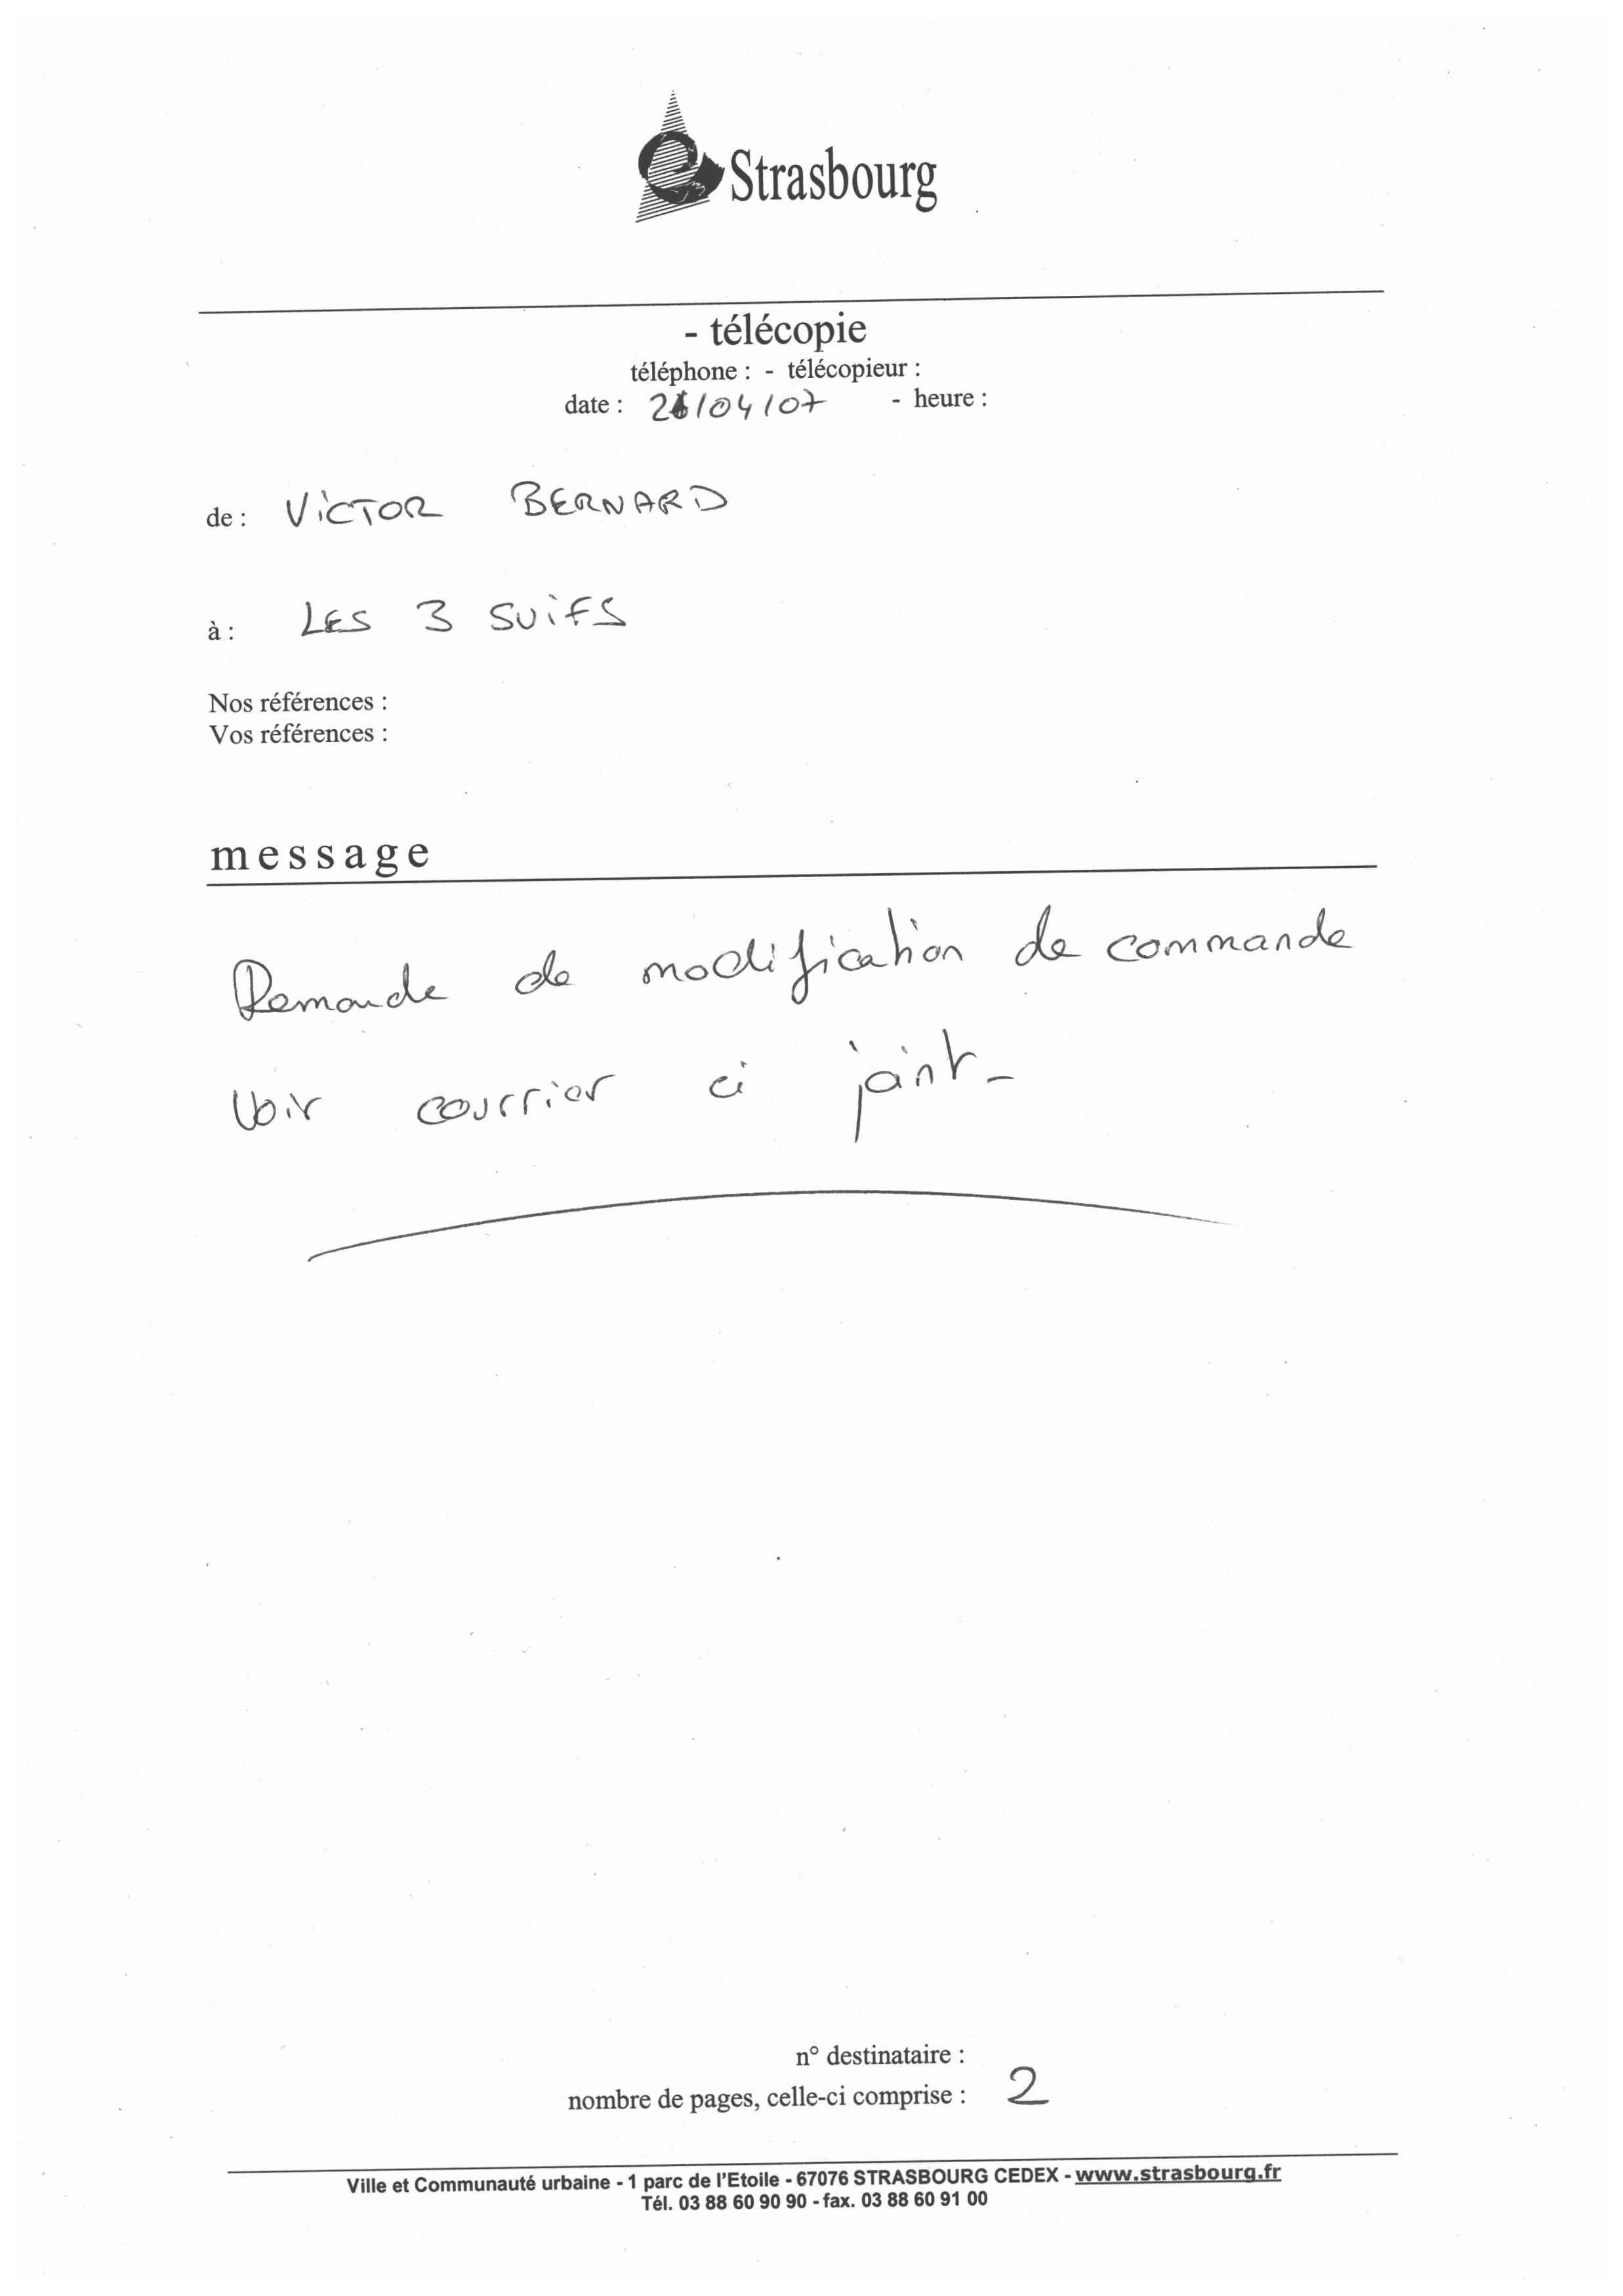 Strasbourg
- télécopie
téléphone : - télécopieur :
date : /04/07 - heure :
de : VICTOR BERNARD
à : LES 3 SUIFS
Nos références :
Vos références :
message
Demande de modification de commande
Voir courrier ci joint -
n° destinataire :
nombre de pages, celle-ci comprise : 2
Ville et Communauté urbaine - 1 parc de l'Etoile - 67076 STRASBOURG CEDEX - www.strasbourg.fr
Tél. 03 88 60 90 90 - fax. 03 88 60 91 00